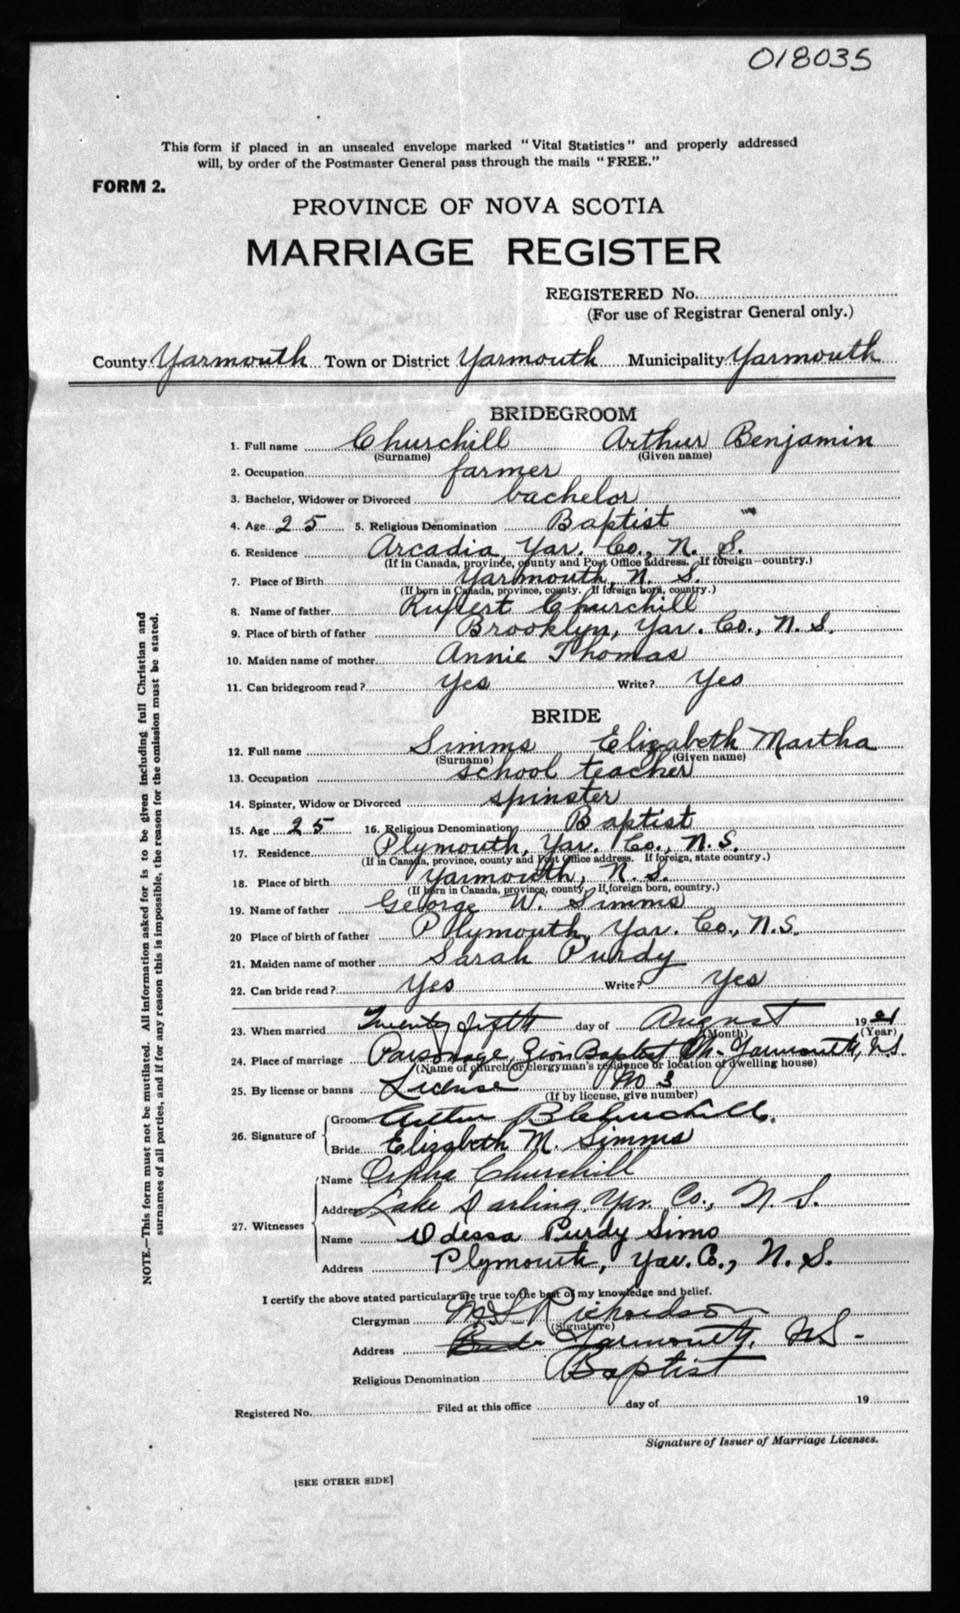 018035
This form if placed in an unsealed envelope marked "Vital Statistics" and properly addressed
will, by order of the Postmaster General pass through the mails "FREE."
FORM 2.
PROVINCE OF NOVA SCOTIA
MARRIAGE REGISTER
REGISTERED No.
(For use of Registrar General only.)
County Yarmouth Town or District Yarmouth Municipality Yarmouth
BRIDEGROOM
1. Full name Churchill Arthur Benjamin
(Surname) (Given name)
2. Occupation farmer
3. Bachelor, Widower or Divorced bachelor
4. Age 25 5. Religious Denomination Baptist
6. Residence Arcadia, Yar. Co., N. S.
(If in Canada, province, county and Post Office address. If foreign—country.)
7. Place of Birth Yarmouth, N. S.
(If born in Canada, province, county. If foreign born, country.)
8. Name of father Rupert Churchill
9. Place of birth of father Brooklyn, Yar. Co., N. S.
10. Maiden name of mother Annie Thomas
11. Can bridegroom read? Yes Write? Yes
BRIDE
12. Full name Simms Elizabeth Martha
(Surname) (Given name)
13. Occupation school teacher
14. Spinster, Widow or Divorced spinster
15. Age 25 16. Religious Denomination Baptist
17. Residence Plymouth, Yar. Co., N.S.
(If in Canada, province, county and Post Office address. If foreign, state country.)
18. Place of birth Yarmouth, N. S.
(If born in Canada, province, county. If foreign born, country.)
19. Name of father George W. Simms
20 Place of birth of father Plymouth, Yar. Co., N.S.
21. Maiden name of mother Sarah Purdy
22. Can bride read? Yes Write? Yes
23. When married Twenty fifth day of August 19 21
(Month) (Year)
24. Place of marriage Parsonage, Zion Baptist Ch. Yarmouth, N.S.
(Name of church or clergyman's residence or location of dwelling house)
25. By license or banns License No 3
(If by license, give number)
26. Signature of Groom Arthur B Churchill.
Bride Elizabeth M. Simms
27. Witnesses Name Orpha Churchill
Address Lake Darling, Yar. Co., N. S.
Name Odessa Purdy Sims
Address Plymouth, Yar. Co., N. S.
I certify the above stated particulars are true to the best of my knowledge and belief.
Clergyman Richardson
(Signature)
Address Yarmouth, NS-
Religious Denomination Baptist
Registered No. Filed at this office day of 19
Signature of Issuer of Marriage Licenses.
[SEE OTHER SIDE]
NOTE.—This form must not be mutilated. All information asked for is to be given including full Christian and
surnames of all parties, and if for any reason this is impossible, the reason for the omission must be stated.